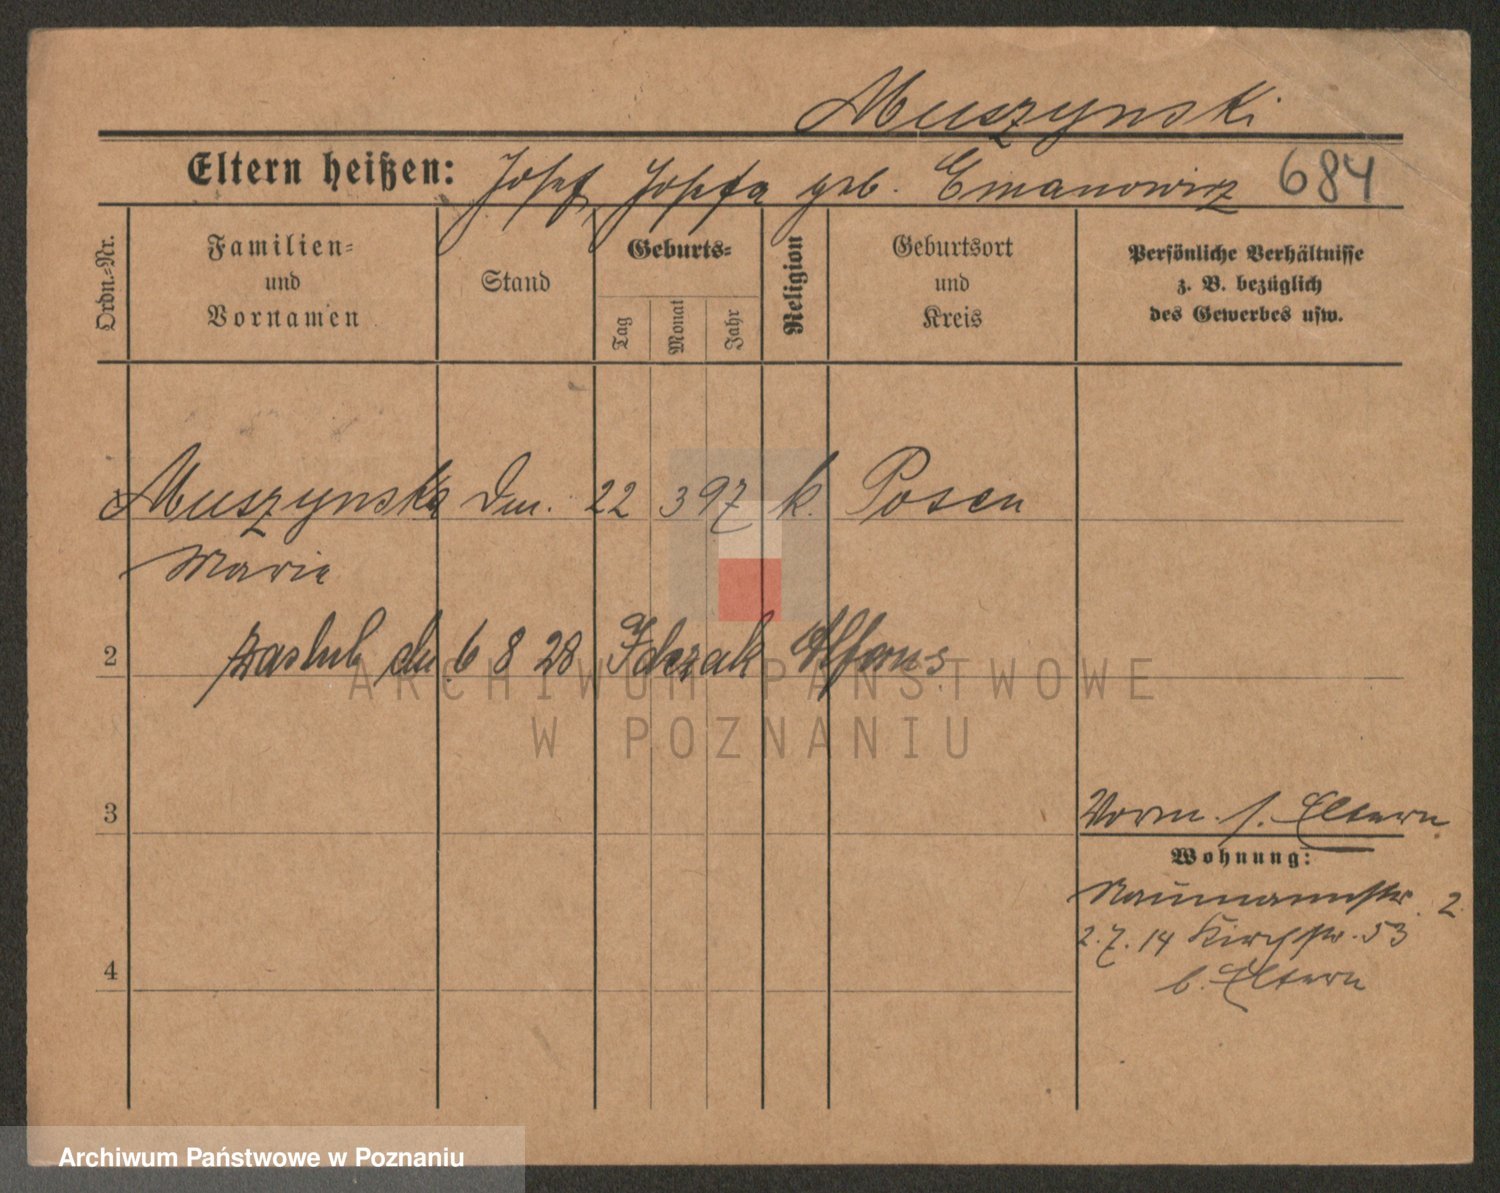 Muszynski
Eltern heißen: Josef, Josefa geb. Emanowicz 684
Ordn.-Nr.
Familien-
und
Vornamen
Stand
Geburts-
Tag
Monat
Jahr
Religion
Geburtsort
und
Kreis
Persönliche Verhältnisse
z. B. bezüglich
des Gewerbes usw.
1 Muszynska 22 3 97 k. Posen
Marie
2 zaslub dn 6 8 28 Idczak Alfons
ARCHIWUM PAŃSTWOWE
W POZNANIU
3
Vorm. s. Eltern
Wohnung:
Naumannstr. 2
2.7.14 Kirchstr. 53
b. Eltern
4
Archiwum Państwowe w Poznaniu